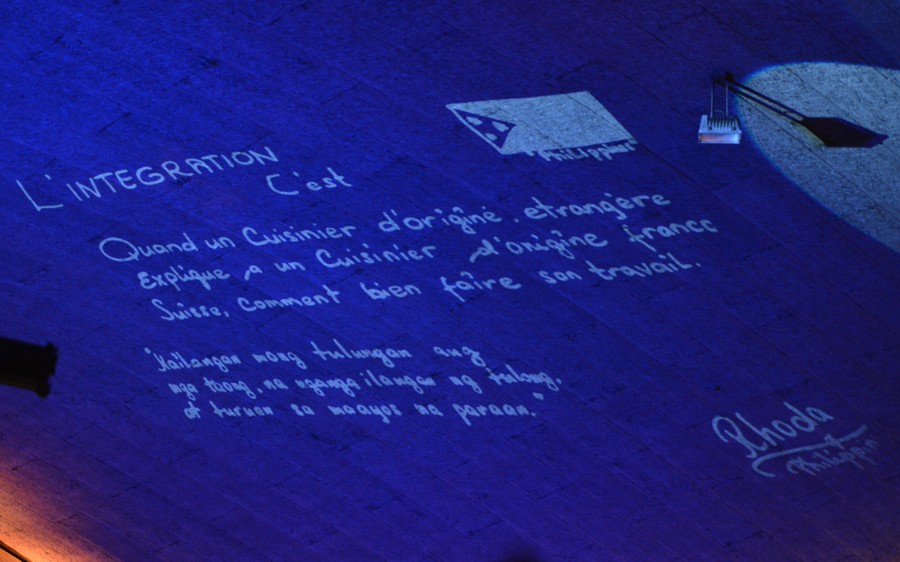 Philippines
L'INTEGRATION
C'est
Quand un Cuisinier d'origîne etrangère
Explique a un Cuisinier d'origîne franco
Suisse, comment bien faîre son travail.
"Kailangan mong tulungan ang
mga taong, na nganga ilangan ng tulong,
at turuan sa maayos na paraan."
Rhoda
Philippin